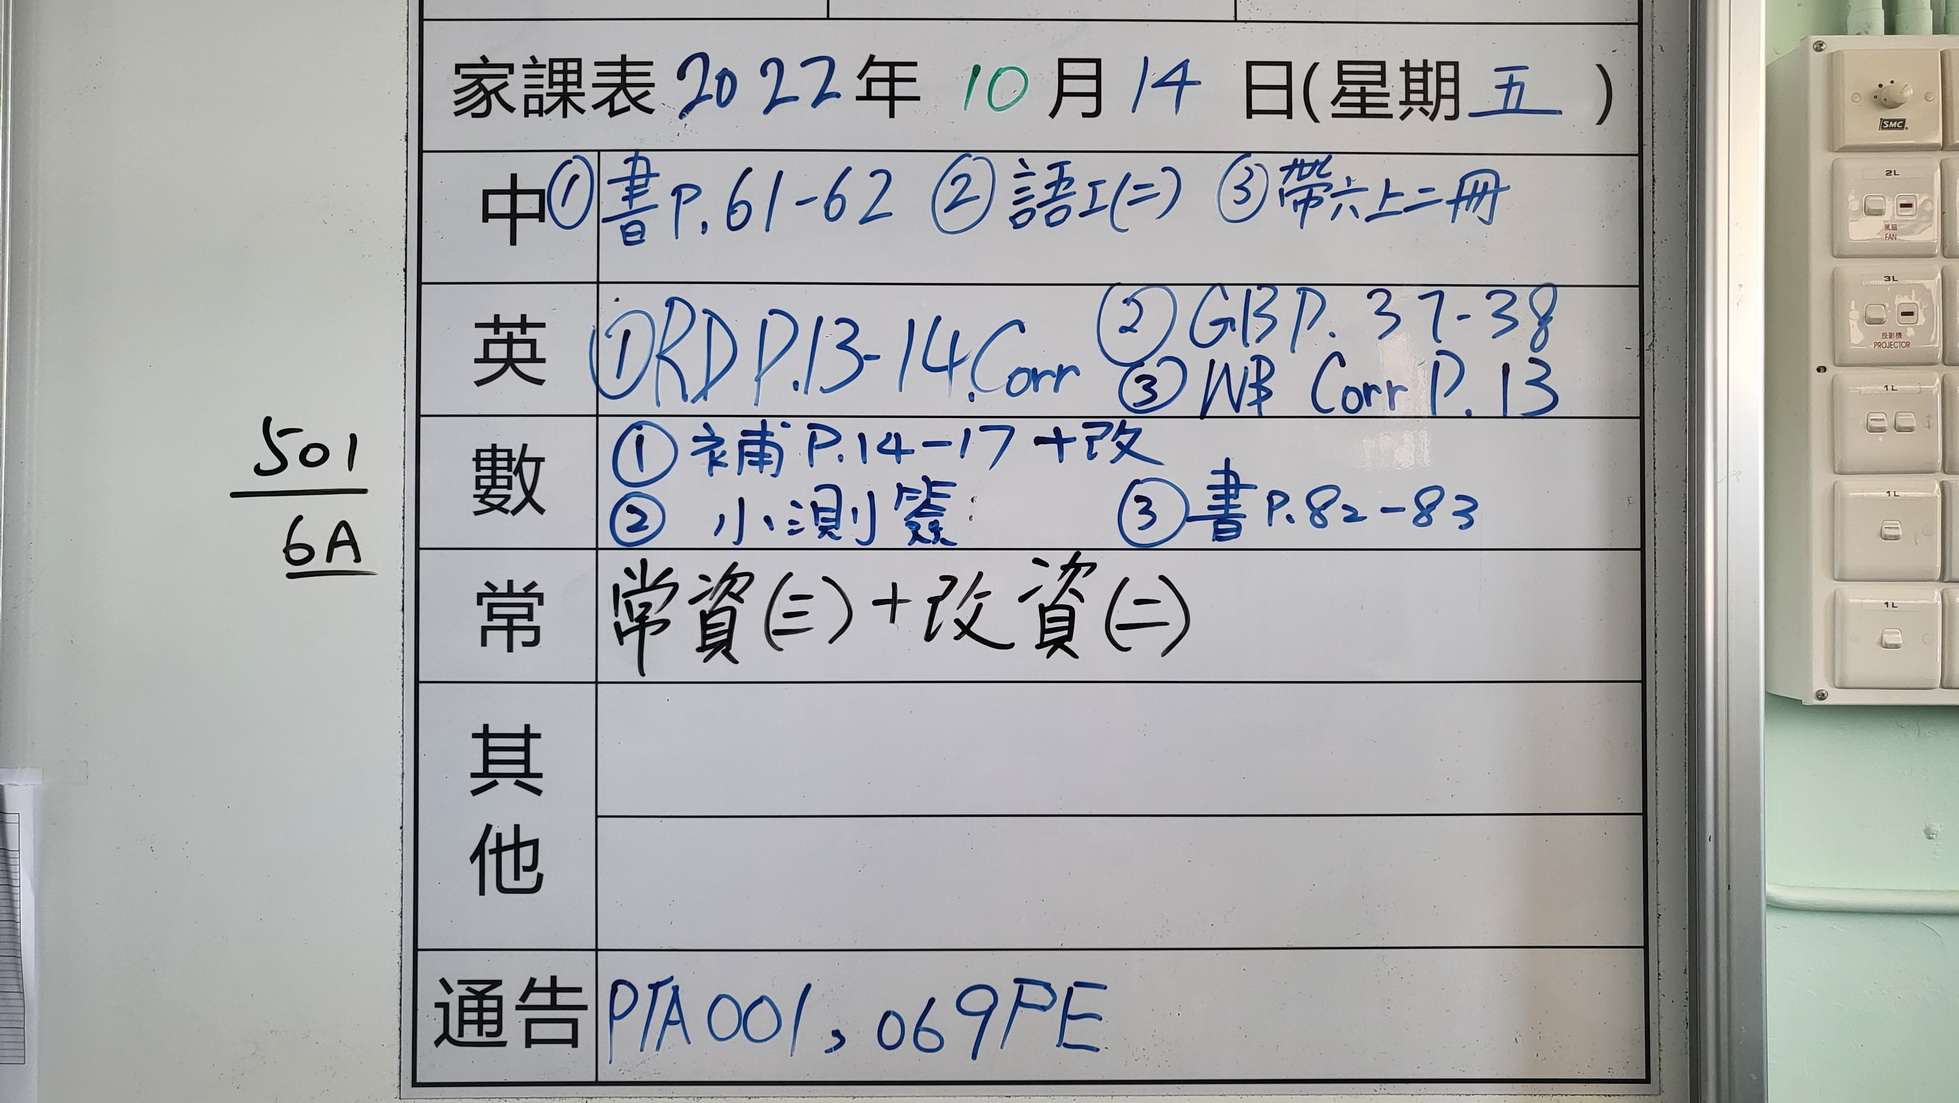 家課表 2022年 10月14日(星期五)
中 ①書P.61-62 ②語工(二) ③帶六上二冊
英 ①RD P.13-14.Corr ②GB P.37-38
③WB Corr P.13
數 ①補P.14-17+改
②小測簽 ③書P.82-83
常 常資(三)+改資(二)
其他
通告 PTA001, 069PE
501
6A
SMC
2L
風扇
FAN
3L
投影機
PROJECTOR
1L
1L
1L